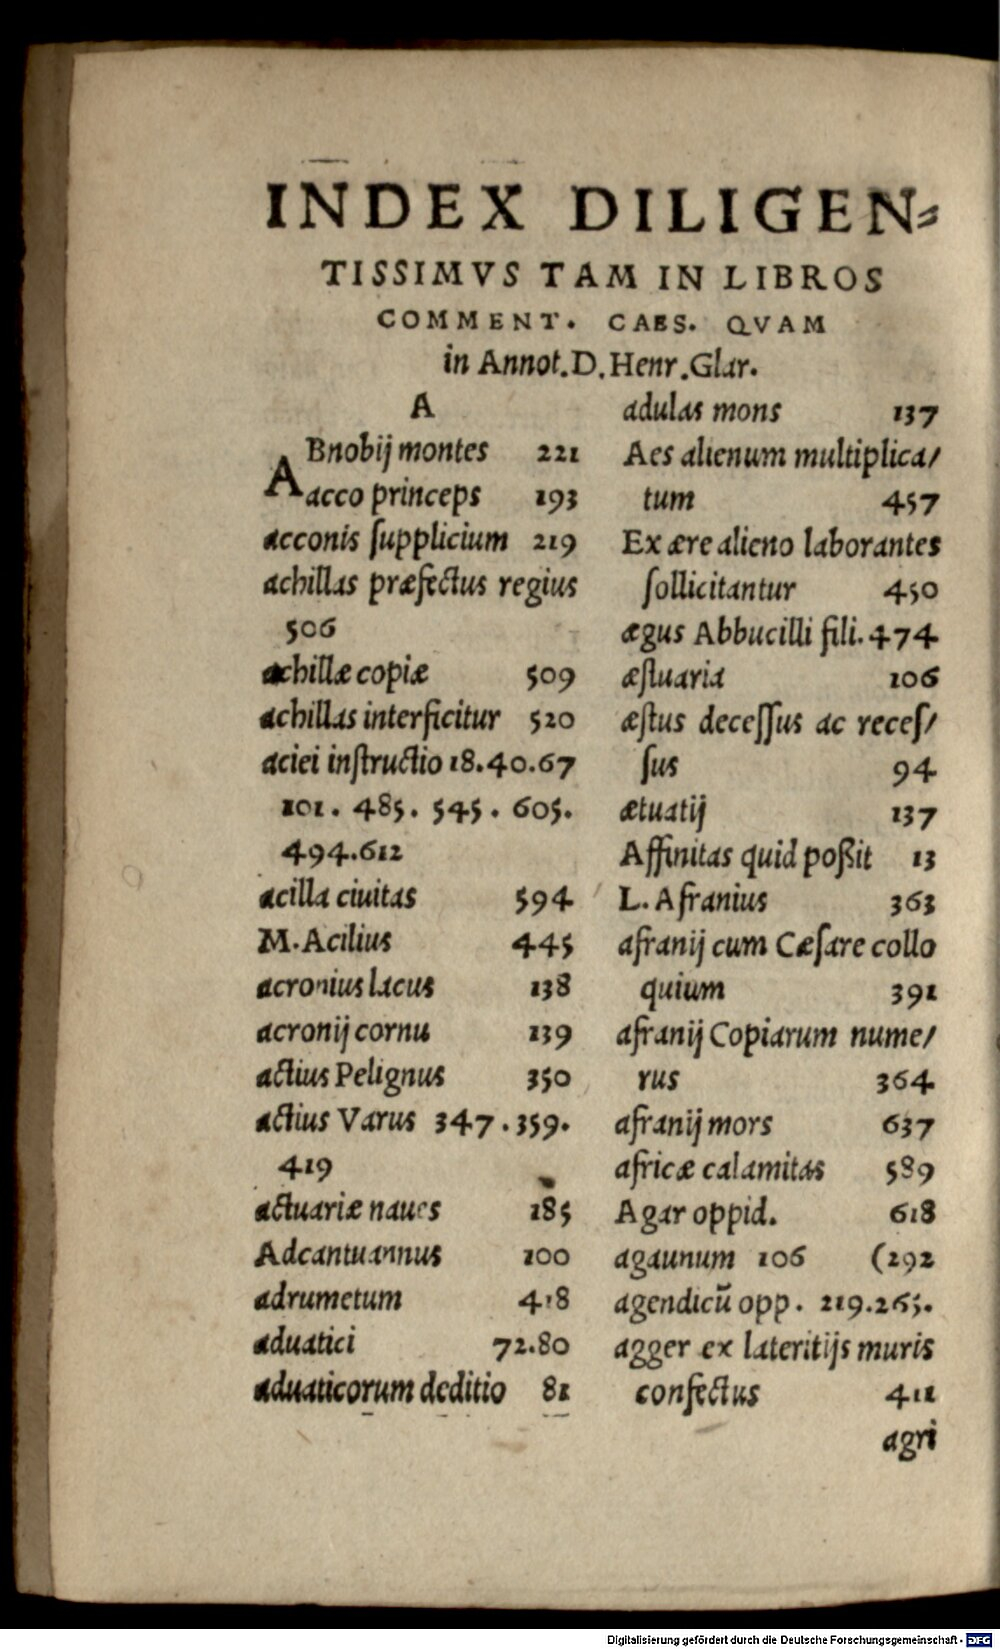 INDEX DILIGEN⸗
TISSIMVS TAM IN LIBROS
COMMENT. CAES. QVAM
in Annot. D. Henr. Glar.
A
ABnobij montes 221
acco princeps 193
acconis ſupplicium 219
achillas præfectus regius
506
achillæ copiæ 509
achillas interficitur 520
aciei inſtructio 18.40.67
101. 485. 545. 605.
494.612
acilla ciuitas 594
M. Acilius 445
acronius lacus 138
acronij cornu 139
actius Pelignus 350
actius Varus 347.359.
419
actuariæ naues 185
Adcantuannus 100
adrumetum 418
aduatici 72.80
aduaticorum deditio 81
adulas mons 137
Aes alienum multiplica/
tum 457
Ex ære alieno laborantes
ſollicitantur 450
ægus Abbucilli fili. 474
æſtuaria 106
æſtus deceſſus ac receſ/
ſus 94
ætuatij 137
Affinitas quid poßit 13
L. Afranius 363
afranij cum Cæſare collo
quium 391
afranij Copiarum nume/
rus 364
afranij mors 637
africæ calamitas 589
Agar oppid. 618
agaunum 106 (292
agendicū opp. 219.265.
agger ex lateritijs muris
confectus 411
agri
Digitalisierung gefördert durch die Deutsche Forschungsgemeinschaft - DFG